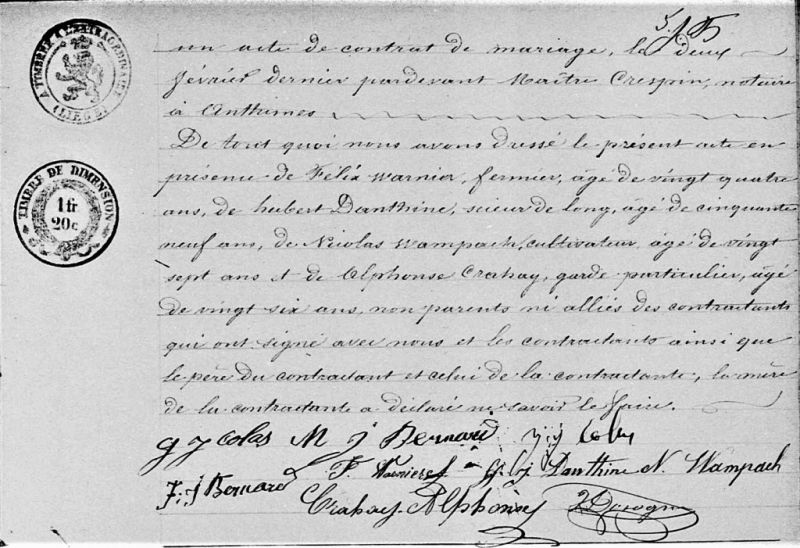 A TIMBRE A L'EXTRAORDINAIRE
(LIEGE)
TIMBRE DE DIMENSION
1 fr
20c
un acte de contrat de mariage, le deux
février dernier pardevant Maître Crespin, notaire
à Anthimes
De tout quoi nous avons dressé le présent acte en
présence de Félix Warnier, fermier, âgé de vingt quatre
ans, de hubert Danthine, scieur de long, âgé de cinquante
neuf ans, de Nicolas Wampach, cultivateur, âgé de vingt
sept ans et de Alphonse Crahay, garde particulier, âgé
de vingt six ans, non parents ni alliés des contractants
qui ont signé avec nous et les contractants ainsi que
le père du contractant et celui de la contractante, la mère
de la contractante a déclaré ne savoir le faire.
M J Bernard
F. J Bernard
F. Warnier
Danthine N. Wampach
Crahay Alphonse